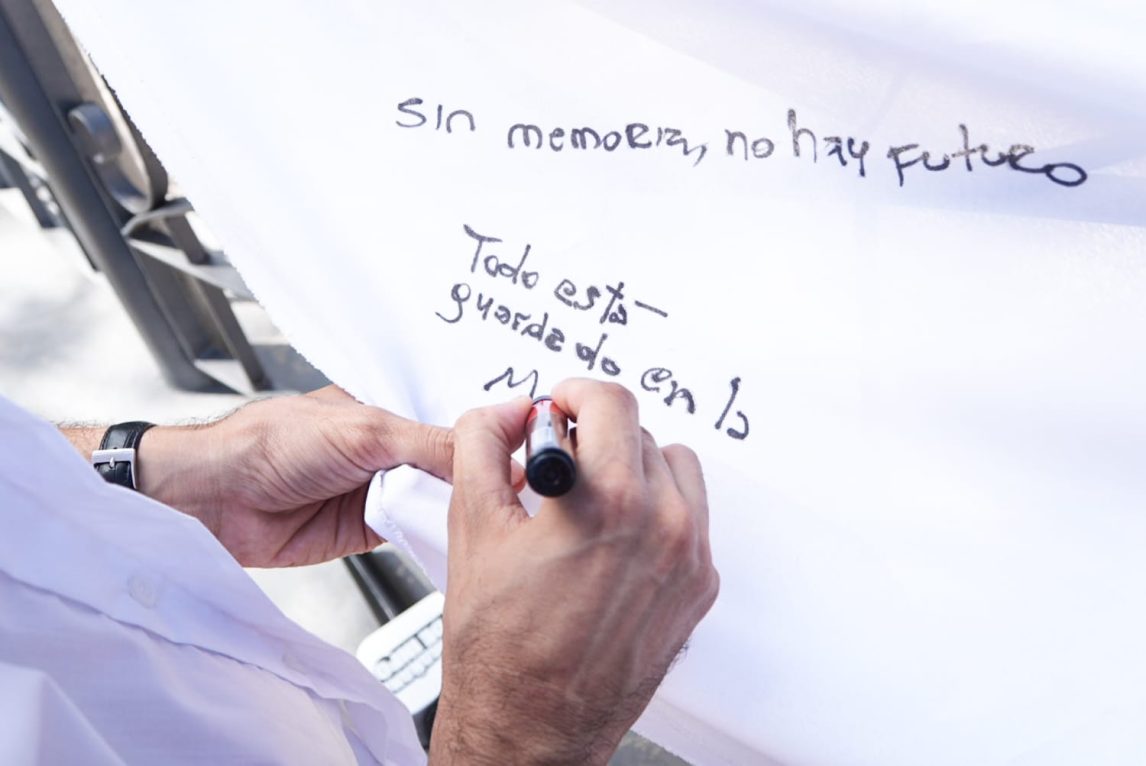 sin memoria, no hay futuro
Todo está
guardado en la
M